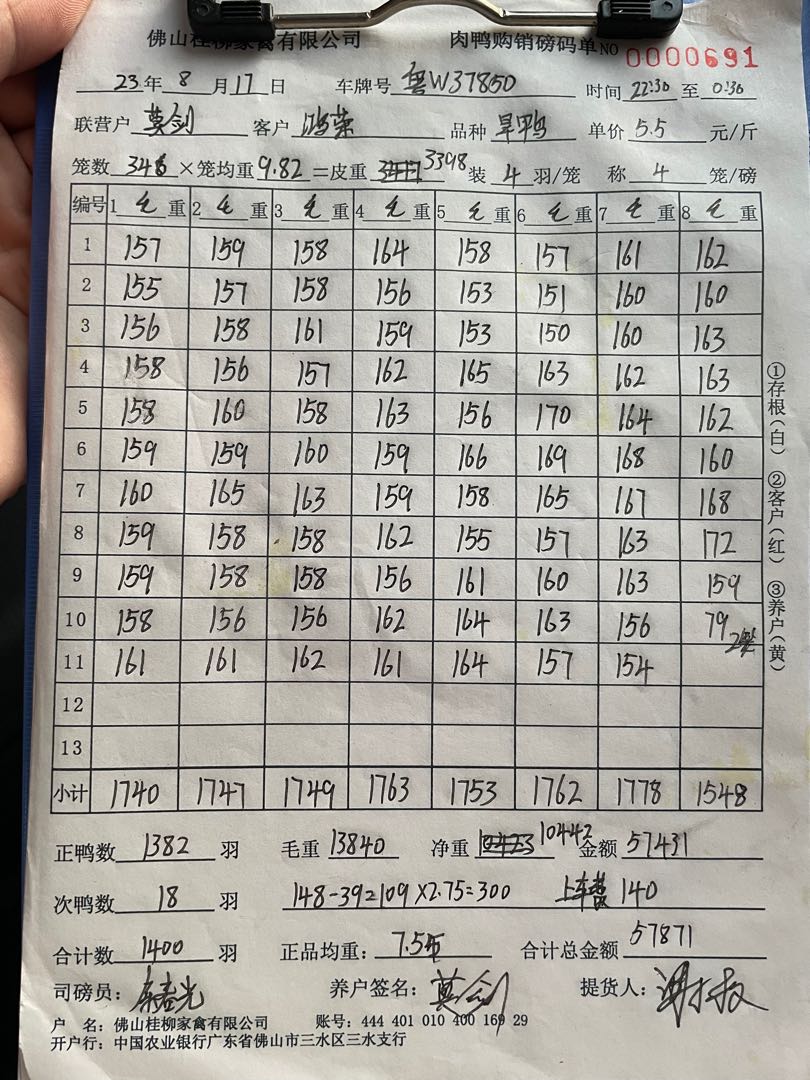 佛山桂柳家禽有限公司 肉鸭购销磅码单 NO 0000691
23年 8 月 17 日 车牌号 粤W37850 时间 22:30 至 0:30
联营户 莫剑 客户 鸿荣 品种 旱鸭 单价 5.5 元/斤
笼数 346 ×笼均重 9.82 =皮重 3398 装 4 羽/笼 称 4 笼/磅
编号 1 毛 重 2 毛 重 3 毛 重 4 毛 重 5 毛 重 6 毛 重 7 毛 重 8 毛 重
1 157 159 158 164 158 157 161 162
2 155 157 158 156 153 151 160 160
3 156 158 161 159 153 150 160 163
4 158 156 157 162 165 163 162 163
5 158 160 158 163 156 170 164 162
6 159 159 160 159 166 169 168 160
7 160 165 163 159 158 165 167 168
8 159 158 158 162 155 157 163 172
9 159 158 158 156 161 160 163 159
10 158 156 156 162 164 163 156 79
11 161 161 162 161 164 157 154
12
13
小计 1740 1747 1749 1763 1753 1762 1778 1548
①存根(白) ②客户(红) ③养户(黄)
正鸭数 1382 羽 毛重 13840 净重 10442 金额 57431
次鸭数 18 羽 148-39=109×2.75=300 上车费 140
合计数 1400 羽 正品均重: 7.55 合计总金额 57871
司磅员: 养户签名: 莫剑 提货人:
户 名: 佛山桂柳家禽有限公司 账号: 444 401 010 400 169 29
开户行: 中国农业银行广东省佛山市三水区三水支行